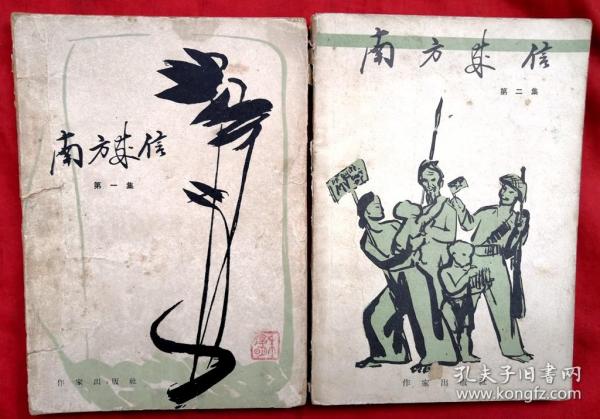 南方来信
第一集
作家出版社
南方来信
第二集
作家出版社
孔夫子旧书网
www.kongfz.com